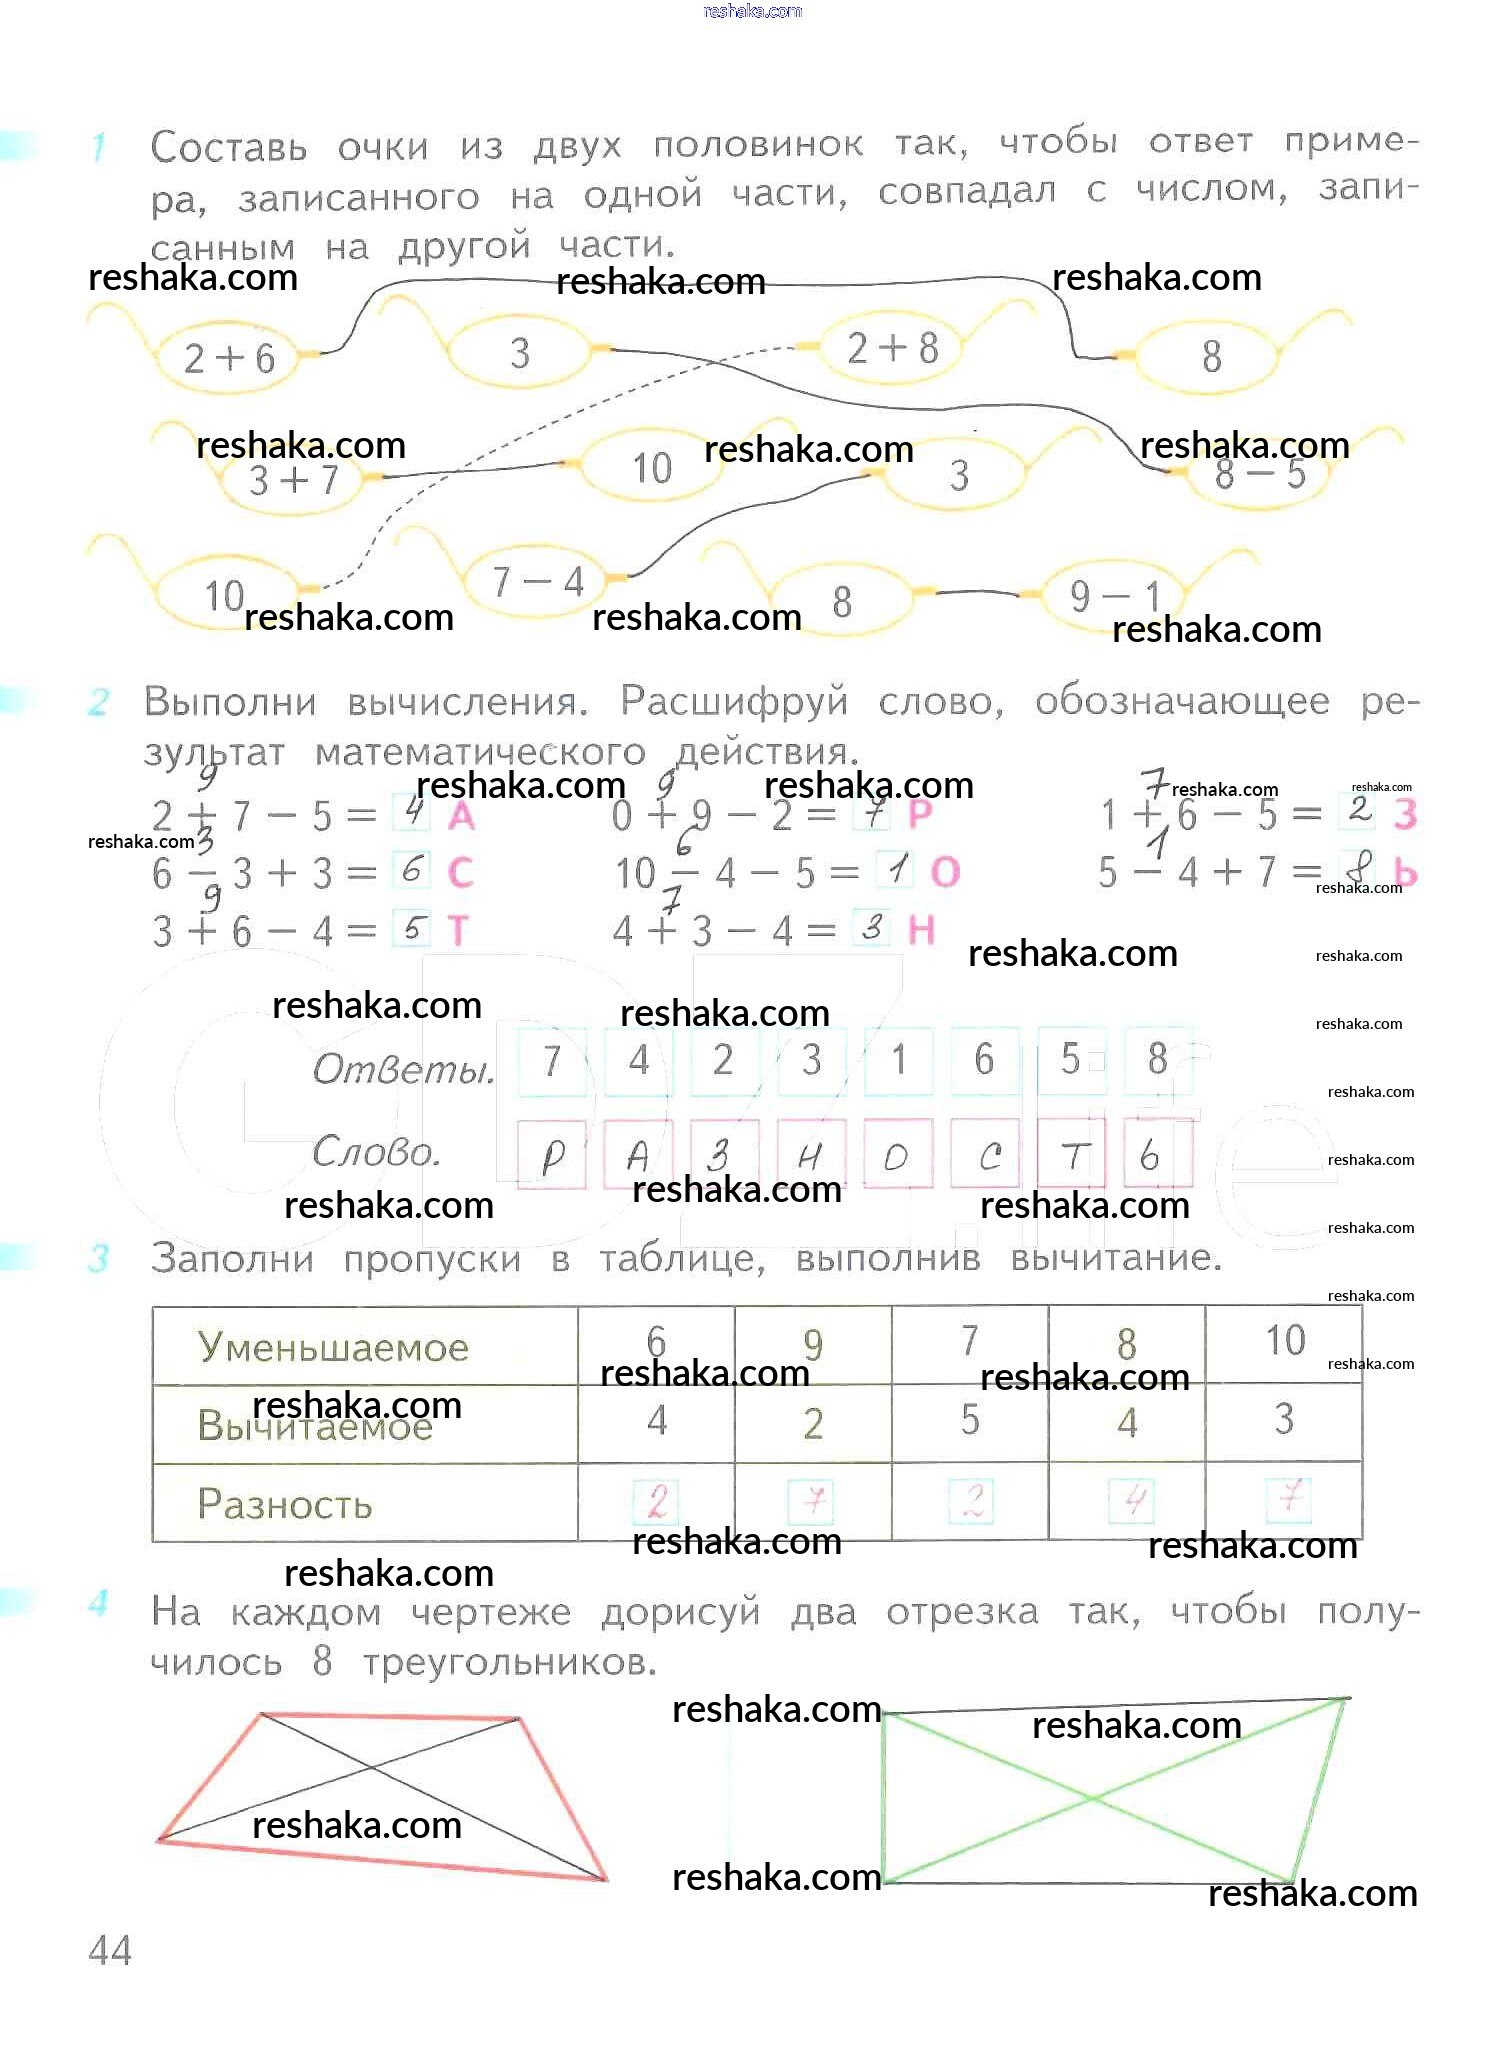 reshaka.com
1 Составь очки из двух половинок так, чтобы ответ приме-
ра, записанного на одной части, совпадал с числом, запи-
санным на другой части.
reshaka.com reshaka.com reshaka.com
2 + 6 3 2 + 8 8
reshaka.com reshaka.com reshaka.com
3 + 7 10 3 8 − 5
10 7 − 4 8 9 − 1
reshaka.com reshaka.com reshaka.com
2 Выполни вычисления. Расшифруй слово, обозначающее ре-
зультат математического действия.
9 reshaka.com 9 reshaka.com 7 reshaka.com reshaka.com
2 + 7 − 5 = 4 А 0 + 9 − 2 = 7 Р 1 + 6 − 5 = 2 З
reshaka.com 3 6 1
6 − 3 + 3 = 6 С 10 − 4 − 5 = 1 О 5 − 4 + 7 = 8 Ь
9 7 reshaka.com
3 + 6 − 4 = 5 Т 4 + 3 − 4 = 3 Н
reshaka.com reshaka.com
reshaka.com reshaka.com
reshaka.com
Ответы. 7 4 2 3 1 6 5 8
reshaka.com
Слово. Р А З Н О С Т Ь
reshaka.com
reshaka.com reshaka.com reshaka.com
reshaka.com
3 Заполни пропуски в таблице, выполнив вычитание.
reshaka.com
Уменьшаемое 6 9 7 8 10
reshaka.com reshaka.com reshaka.com
reshaka.com
Вычитаемое 4 2 5 4 3
Разность 2 7 2 4 7
reshaka.com reshaka.com
reshaka.com
4 На каждом чертеже дорисуй два отрезка так, чтобы полу-
чилось 8 треугольников.
reshaka.com reshaka.com
reshaka.com
reshaka.com reshaka.com
44